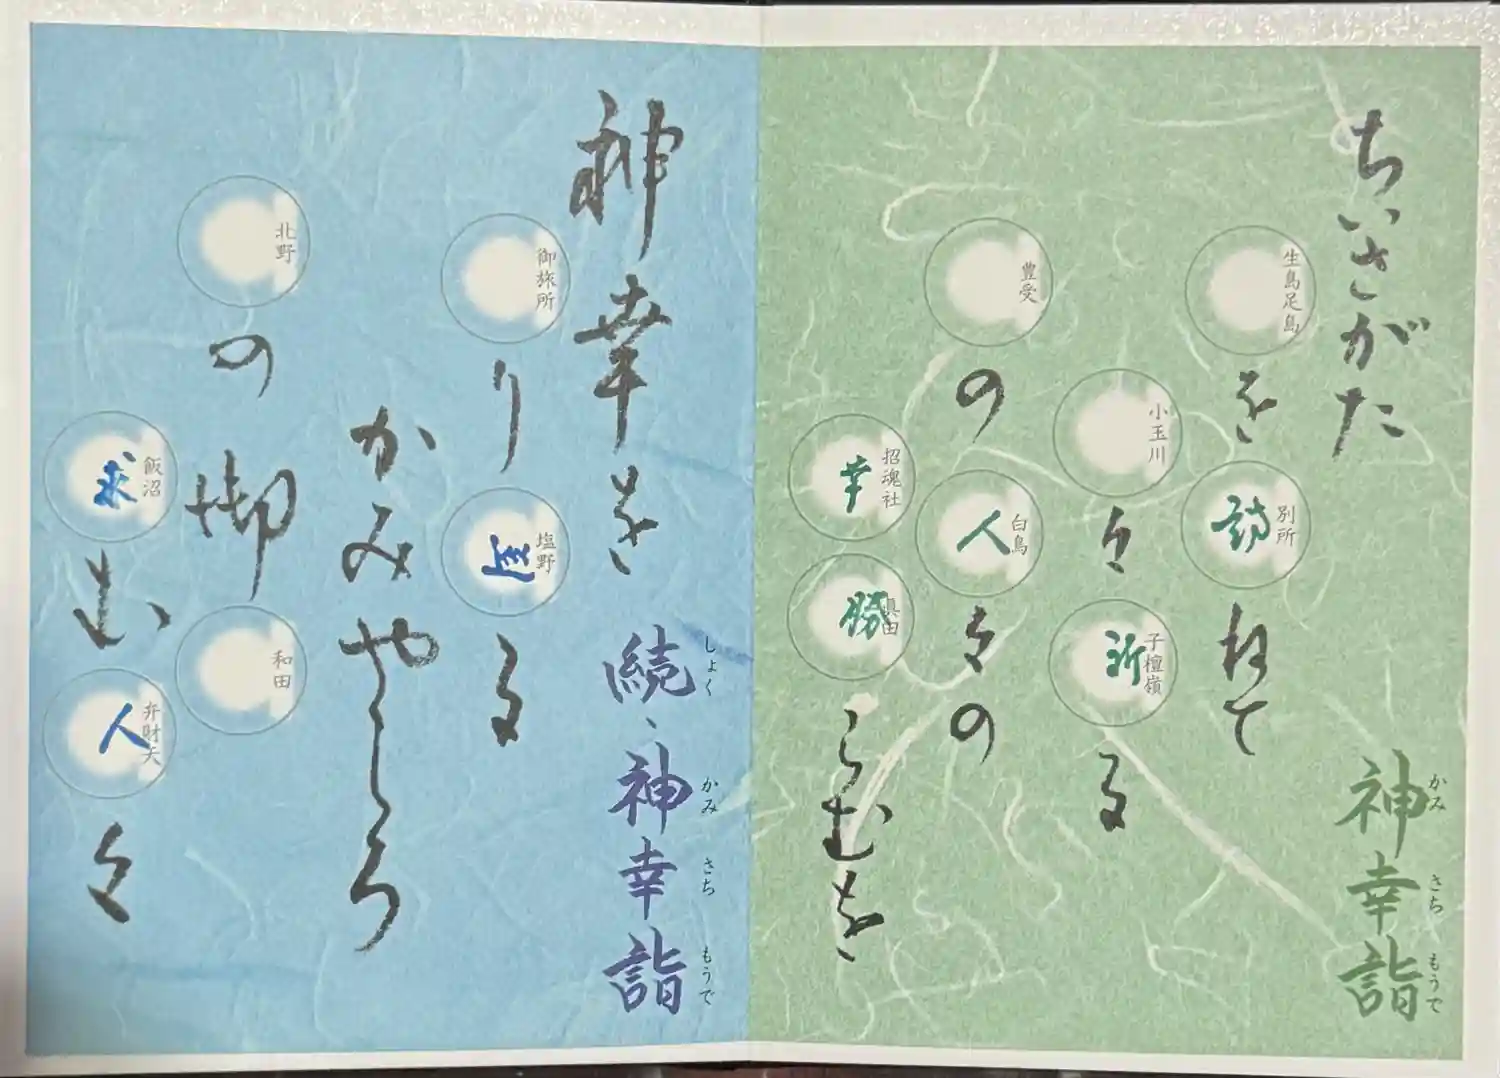 ちいさがた
神幸詣
かみ さち もうで
生島足島
を
別所
訪
ねて
小玉川
々
子檀嶺
祈
る
豊受
の
白鳥
人
々の
招魂社
幸
眞田
勝
らむを
神幸を
続、神幸詣
しょく かみ さち もうで
御旅所
り
塩野
巡
る
かみやしろ
北野
の御
和田
飯沼
求
む
弁財天
人
々